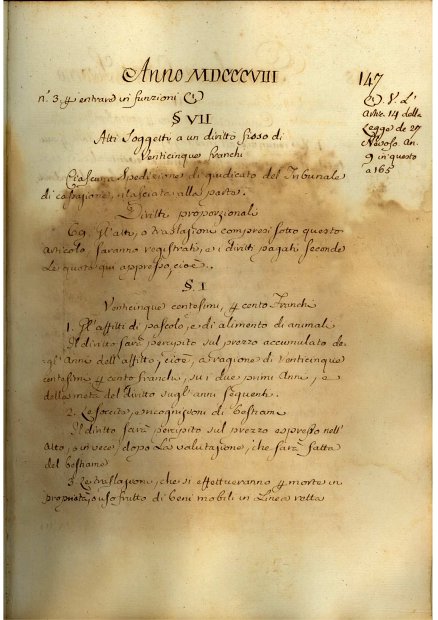 Anno MDCCCVIII
147
n.° 3, p entrare in funzioni (1)
§ VII
Atti Soggetti a un diritto fisso di
Venticinque franchi
Ciascuna Spedizione di giudicato del Tribunale
di cassazione, rilasciata alla parte.
Diritti proporzionali
69. Gl'atti, o traslazioni compresi sotto questo
articolo, saranno registrati, e i diritti pagati secondo
le quote qui appresso, cioè.
§. I
Venticinque centesimi, p cento Franchi
1. Gl'affitti di pascolo, e di alimento di animali
Il diritto sarà percipito sul prezzo accumulato de
gl'Anni dell'affitto, cioè, a ragione di Venticinque
centesimi p cento franchi, su i due primi Anni, e
della metà del diritto sugl'anni seguenti.
2. Le soccite, e ricognizioni di bestiame
Il diritto sarà percipito sul prezzo espresso nell'
Atto, o invece, dopo la valutazione, che sarà fatta
del bestiame
3. Le traslazioni, che si effettueranno p morte in
proprietà, o uso frutto di beni mobili in Linea retta
(1) V. L'
Artic. 14 della
Legge de 27
Nevoso An.
9 in questo
a 165